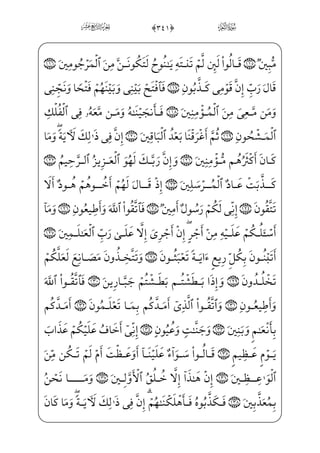 ﴿٣٤١﴾
مُّبِينٌ ۝١١٥ قَالُوا۟ لَئِن لَّمْ تَنتَهِ يَٰنُوحُ لَتَكُونَنَّ مِنَ ٱلْمَرْجُومِينَ ۝١١٦
قَالَ رَبِّ إِنَّ قَوْمِى كَذَّبُونِ ۝١١٧ فَٱفْتَحْ بَيْنِى وَبَيْنَهُمْ فَتْحًا وَنَجِّنِى
وَمَن مَّعِىَ مِنَ ٱلْمُؤْمِنِينَ ۝١١٨ فَأَنجَيْنَٰهُ وَمَن مَّعَهُۥ فِى ٱلْفُلْكِ
ٱلْمَشْحُونِ ۝١١٩ ثُمَّ أَغْرَقْنَا بَعْدُ ٱلْبَاقِينَ ۝١٢٠ إِنَّ فِى ذَٰلِكَ لَءَايَةً ۖ وَمَا
كَانَ أَكْثَرُهُم مُّؤْمِنِينَ ۝١٢١ وَإِنَّ رَبَّكَ لَهُوَ ٱلْعَزِيزُ ٱلرَّحِيمُ ۝١٢٢
كَذَّبَتْ عَادٌ ٱلْمُرْسَلِينَ ۝١٢٣ إِذْ قَالَ لَهُمْ أَخُوهُمْ هُودٌ أَلَا
تَتَّقُونَ ۝١٢٤ إِنِّى لَكُمْ رَسُولٌ أَمِينٌ ۝١٢٥ فَٱتَّقُوا۟ ٱللَّهَ وَأَطِيعُونِ ۝١٢٦ وَمَآ
أَسْـَٔلُكُمْ عَلَيْهِ مِنْ أَجْرٍ ۖ إِنْ أَجْرِىَ إِلَّا عَلَىٰ رَبِّ ٱلْعَٰلَمِينَ ۝١٢٧
أَتَبْنُونَ بِكُلِّ رِيعٍ ءَايَةً تَعْبَثُونَ ۝١٢٨ وَتَتَّخِذُونَ مَصَانِعَ لَعَلَّكُمْ
تَخْلُدُونَ ۝١٢٩ وَإِذَا بَطَشْتُم بَطَشْتُمْ جَبَّارِينَ ۝١٣٠ فَٱتَّقُوا۟ ٱللَّهَ
وَأَطِيعُونِ ۝١٣١ وَٱتَّقُوا۟ ٱلَّذِىٓ أَمَدَّكُم بِمَا تَعْلَمُونَ ۝١٣٢ أَمَدَّكُم
بِأَنْعَٰمٍ وَبَنِينَ ۝١٣٣ وَجَنَّٰتٍ وَعُيُونٍ ۝١٣٤ إِنِّىٓ أَخَافُ عَلَيْكُمْ عَذَابَ
يَوْمٍ عَظِيمٍ ۝١٣٥ قَالُوا۟ سَوَآءٌ عَلَيْنَآ أَوَعَظْتَ أَمْ لَمْ تَكُن مِّنَ
ٱلْوَٰعِظِينَ ۝١٣٦ إِنْ هَٰذَآ إِلَّا خُلُقُ ٱلْأَوَّلِينَ ۝١٣٧ وَمَا نَحْنُ
بِمُعَذَّبِينَ ۝١٣٨ فَكَذَّبُوهُ فَأَهْلَكْنَٰهُمْ ۗ إِنَّ فِى ذَٰلِكَ لَءَايَةً ۖ وَمَا كَانَ